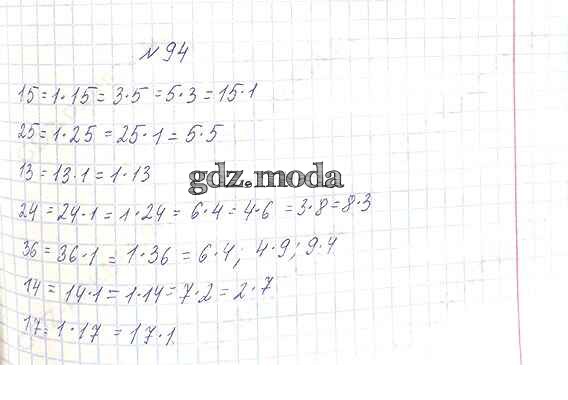 №94
15=1·15=3·5=5·3=15·1
25=1·25=25·1=5·5
13=13·1=1·13
gdz.moda
24=24·1=1·24=6·4=4·6=3·8=8·3
36=36·1=1·36=6·4; 4·9; 9·4
14=14·1=1·14=7·2=2·7
17=1·17=17·1